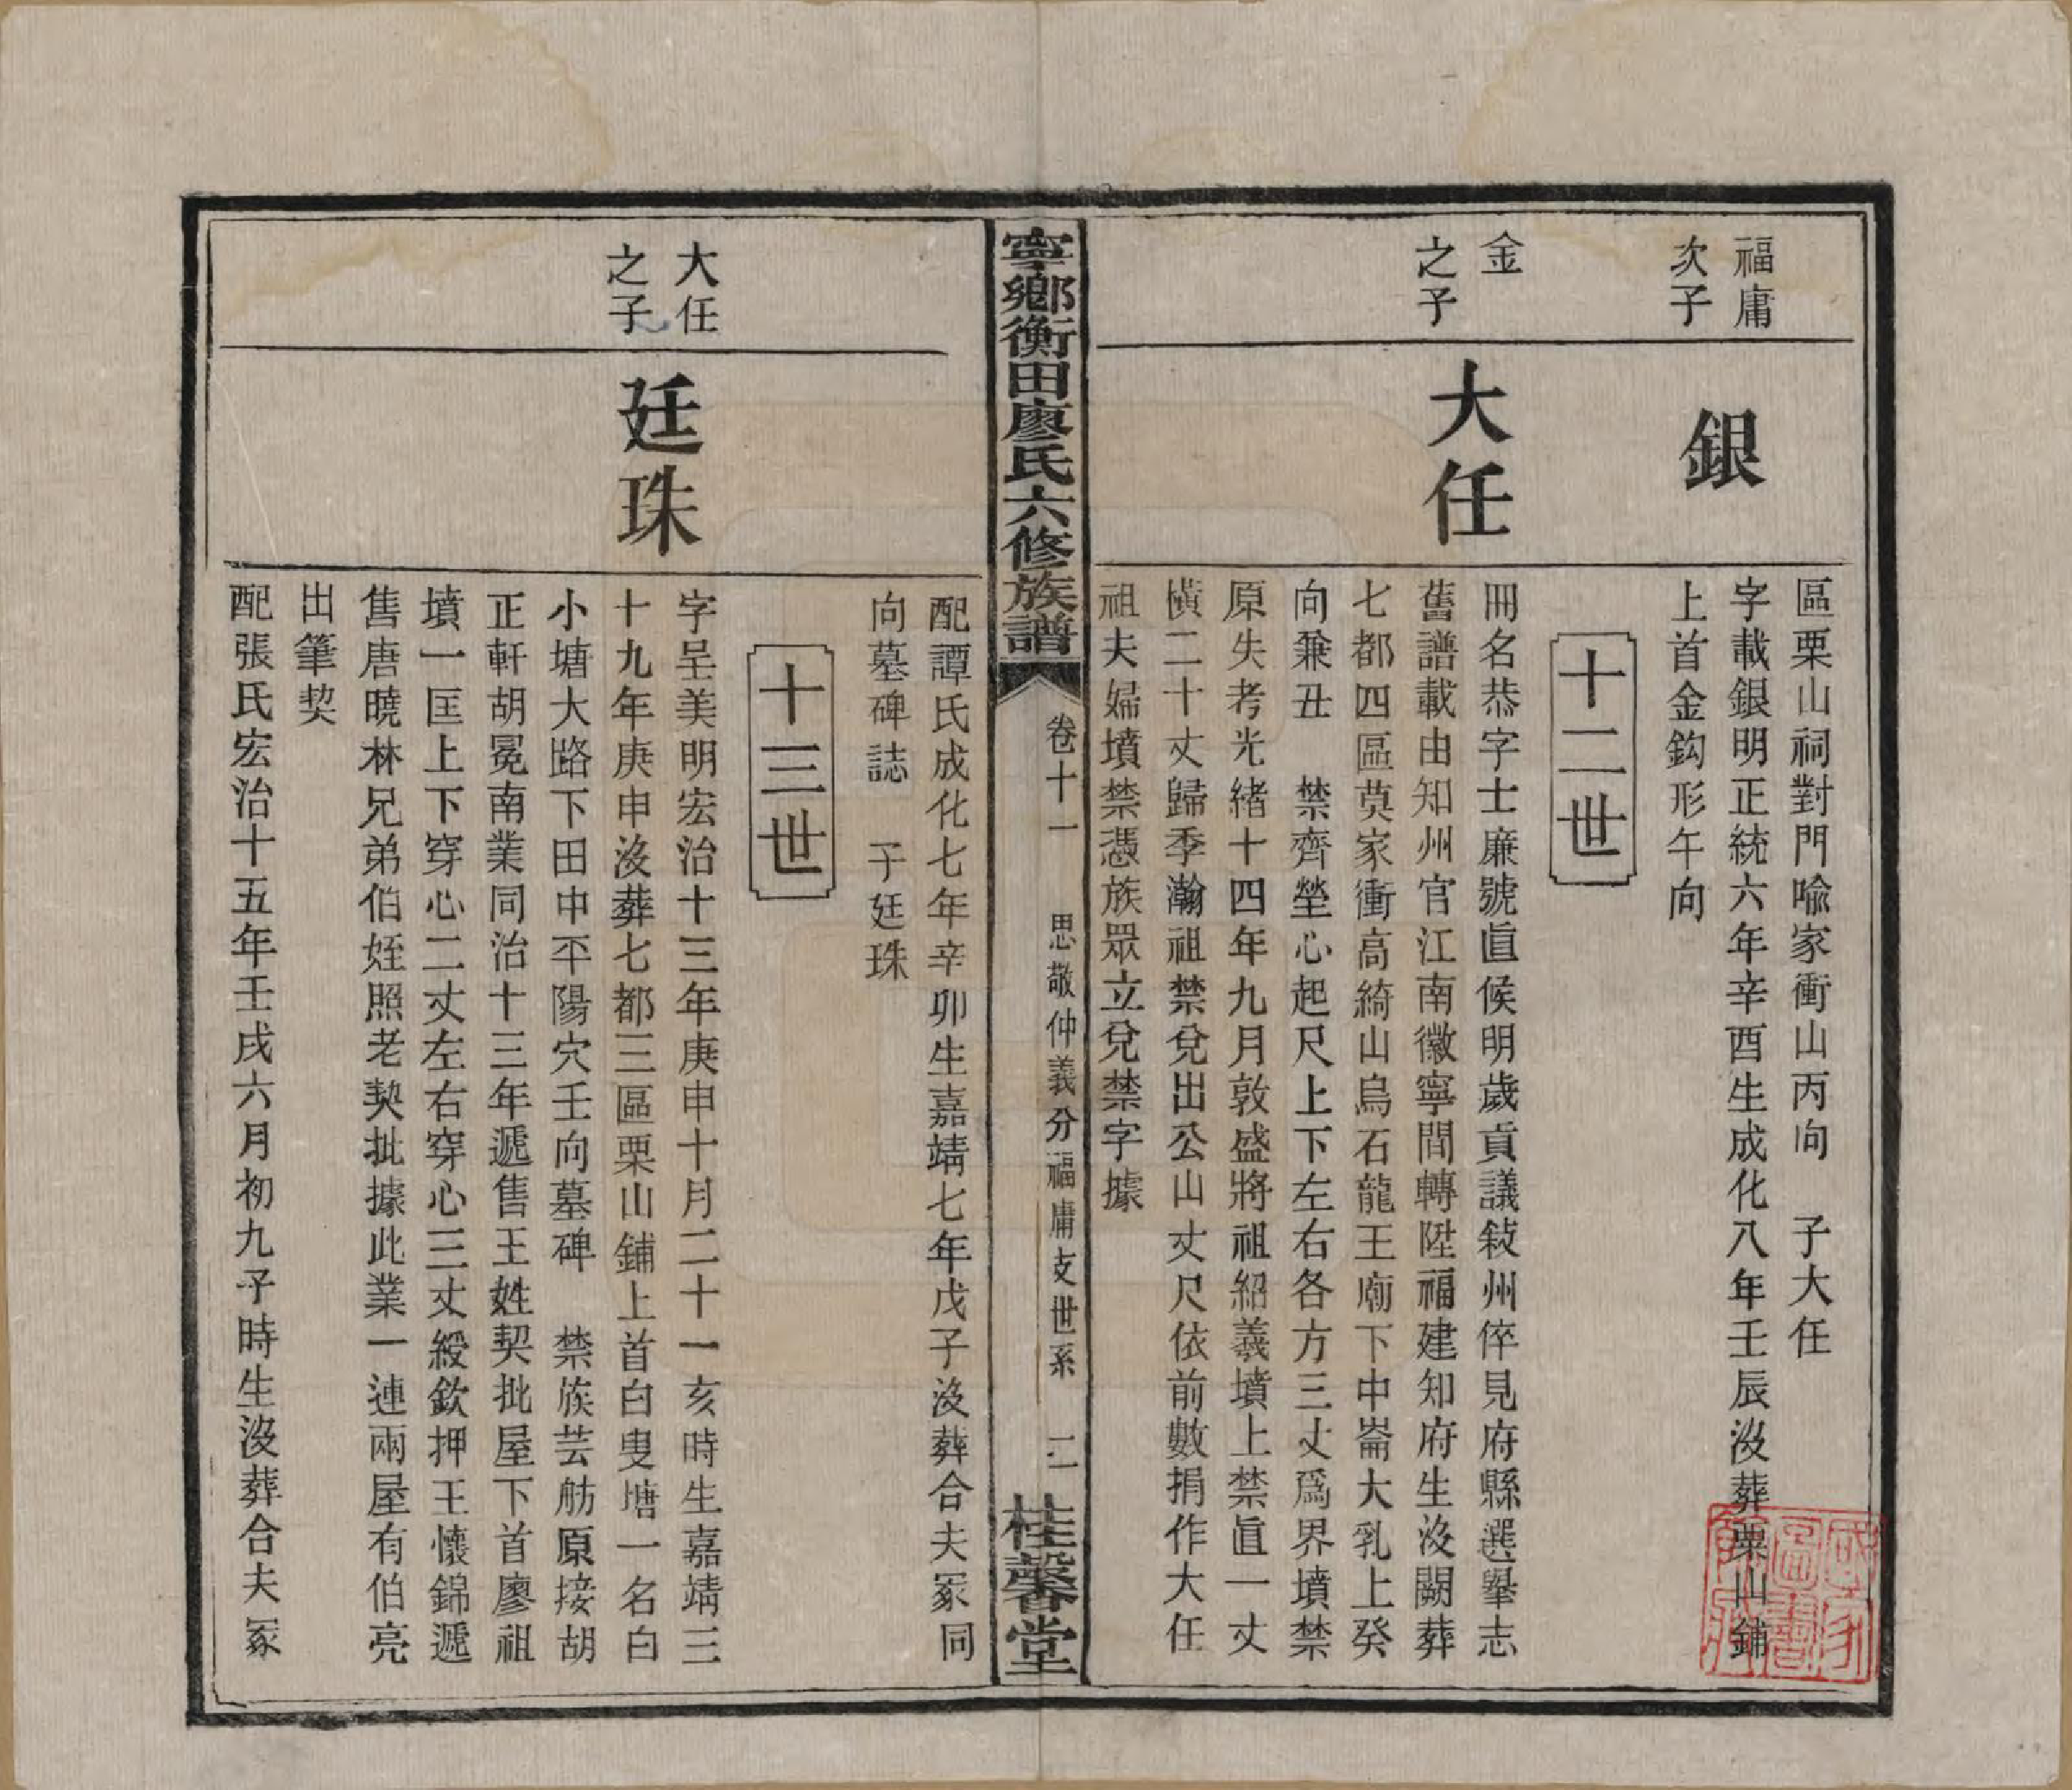 福庸
次子
銀
區栗山祠對門喻家衝山丙向　子大任
字載銀明正統六年辛酉生成化八年壬辰沒葬栗山鋪
上首金鈎形午向
十二世
金
之子
大任
冊名恭字士廉號直候明歲貢議敍州倅見府縣選舉志
舊譜載由知州官江南徽寧間轉陞福建知府生沒闕葬
七都四區莫家衝高綺山烏石龍王廟下中崙大乳上癸
向兼丑　禁齊塋心起尺上下左右各方三丈爲界墳禁
原失考光緒十四年九月敦盛將祖紹羲墳上禁直一丈
橫二十丈歸季瀚祖禁兌出公山丈尺依前數捐作大任
祖夫婦墳禁憑族眾立兌禁字據
寧鄉衡田廖氏六修族譜
卷十一　思敬仲義分福庸支世系　二
桂馨堂
配譚氏成化七年辛卯生嘉靖七年戊子沒葬合夫冢同
向墓碑誌　子廷珠
十三世
大任
之子
廷珠
字呈美明宏治十三年庚申十月二十一亥時生嘉靖三
十九年庚申沒葬七都三區栗山鋪上首白叟塘一名白
小塘大路下田中平陽穴壬向墓碑　禁族芸舫原接胡
正軒胡冕南業同治十三年遞售王姓契批屋下首廖祖
墳一匡上下穿心二丈左右穿心三丈綬欽押王懷錦遞
售唐曉林兄弟伯姪照老契批據此業一連兩屋有伯亮
出筆契
配張氏宏治十五年壬戌六月初九子時生沒葬合夫冢